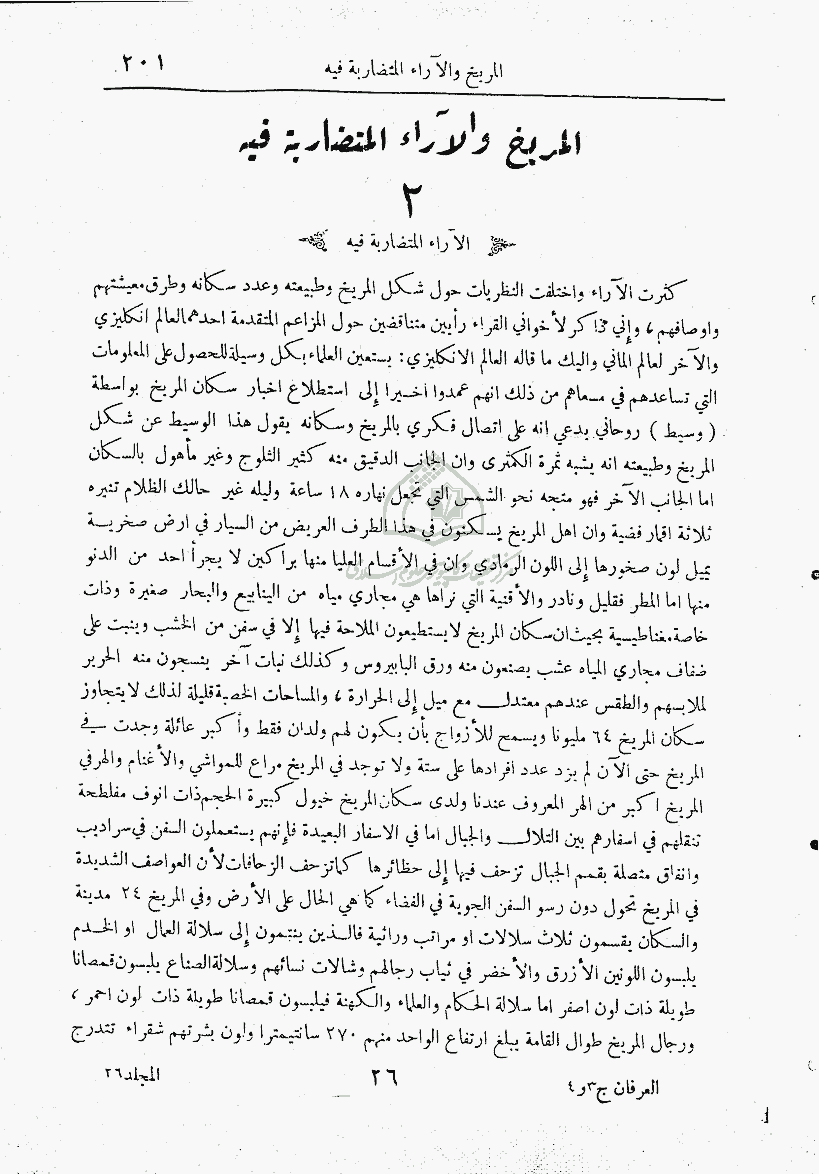 المريخ والآراء المتضاربة فيه ٢٠١
المريخ والآراء المتضاربة فيه
٢
الآراء المتضاربة فيه
كثرت الآراء واختلفت النظريات حول شكل المريخ وطبيعته وعدد سكانه وطرق معيشتهم
واوصافهم ، وإني ذاكر لأخواني القراء رأيين متناقضين حول المزاعم المتقدمة احدهما لعالم انكليزي
والآخر لعالم الماني واليك ما قاله العالم الانكليزي : يستعين العلماء بكل وسيلة للحصول على المعلومات
التي تساعدهم في مسعاهم من ذلك انهم عمدوا اخيرا إلى استطلاع اخبار سكان المريخ بواسطة
( وسيط ) روحاني يدعي انه على اتصال فكري بالمريخ وسكانه يقول هذا الوسيط عن شكل
المريخ وطبيعته انه يشبه ثمرة الكمثرى وان الجانب الدقيق منه كثير الثلوج وغير مأهول بالسكان
اما الجانب الآخر فهو متجه نحو الشمس التي تجعل نهاره ١٨ ساعة وليله غير حالك الظلام تنيره
ثلاثة اقمار فضية وان اهل المريخ يسكنون في هذا الطرف العريض من السيار في ارض صخرية
يميل لون صخورها إلى اللون الرمادي وان في الأقسام العليا منها براكين لا يجرأ احد من الدنو
منها اما المطر فقليل ونادر والأقنية التي نراها هي مجاري مياه من الينابيع والبحار صغيرة وذات
خاصة مغناطيسية بحيث ان سكان المريخ لا يستطيعون الملاحة فيها إلا في سفن من الخشب وينبت على
ضفاف مجاري المياه عشب يصنعون منه ورق البابيروس وكذلك نبات آخر ينسجون منه الحرير
لملابسهم والطقس عندهم معتدل مع ميل إلى الحرارة ، والمساحات الخصبة قليلة لذلك لا يتجاوز
سكان المريخ ٦٤ مليونا ويسمح للأزواج بأن يكون لهم ولدان فقط وأكبر عائلة وجدت في
المريخ حتى الآن لم يزد عدد افرادها على ستة ولا توجد في المريخ مراع للمواشي والأغنام والهر في
المريخ اكبر من الهر المعروف عندنا ولدى سكان المريخ خيول كبيرة الحجم ذات انوف مفلطحة
تنقلهم في اسفارهم بين التلال والجبال اما في الاسفار البعيدة فإنهم يستعملون السفن في سراديب
وانفاق متصلة بقمم الجبال تزحف فيها إلى حظائرها كما تزحف الزحافات لأن العواصف الشديدة
في المريخ تحول دون رسو السفن الجوية في الفضاء كما هي الحال على الأرض وفي المريخ ٢٤ مدينة
والسكان يقسمون ثلاث سلالات او مراتب وراثية فالذين ينتمون إلى سلالة العمال او الخدم
يلبسون اللونين الأزرق والأخضر في ثياب رجالهم وشالات نسائهم وسلالة الصناع يلبسون قمصانا
طويلة ذات لون اصفر اما سلالة الحكام والعلماء والكهنة فيلبسون قمصانا طويلة ذات لون احمر ،
ورجال المريخ طوال القامة يبلغ ارتفاع الواحد منهم ٢٧٠ سانتيمترا ولون بشرتهم شقراء تتدرج
العرفان ج٣و٤ ٢٦ المجلد ٢٦